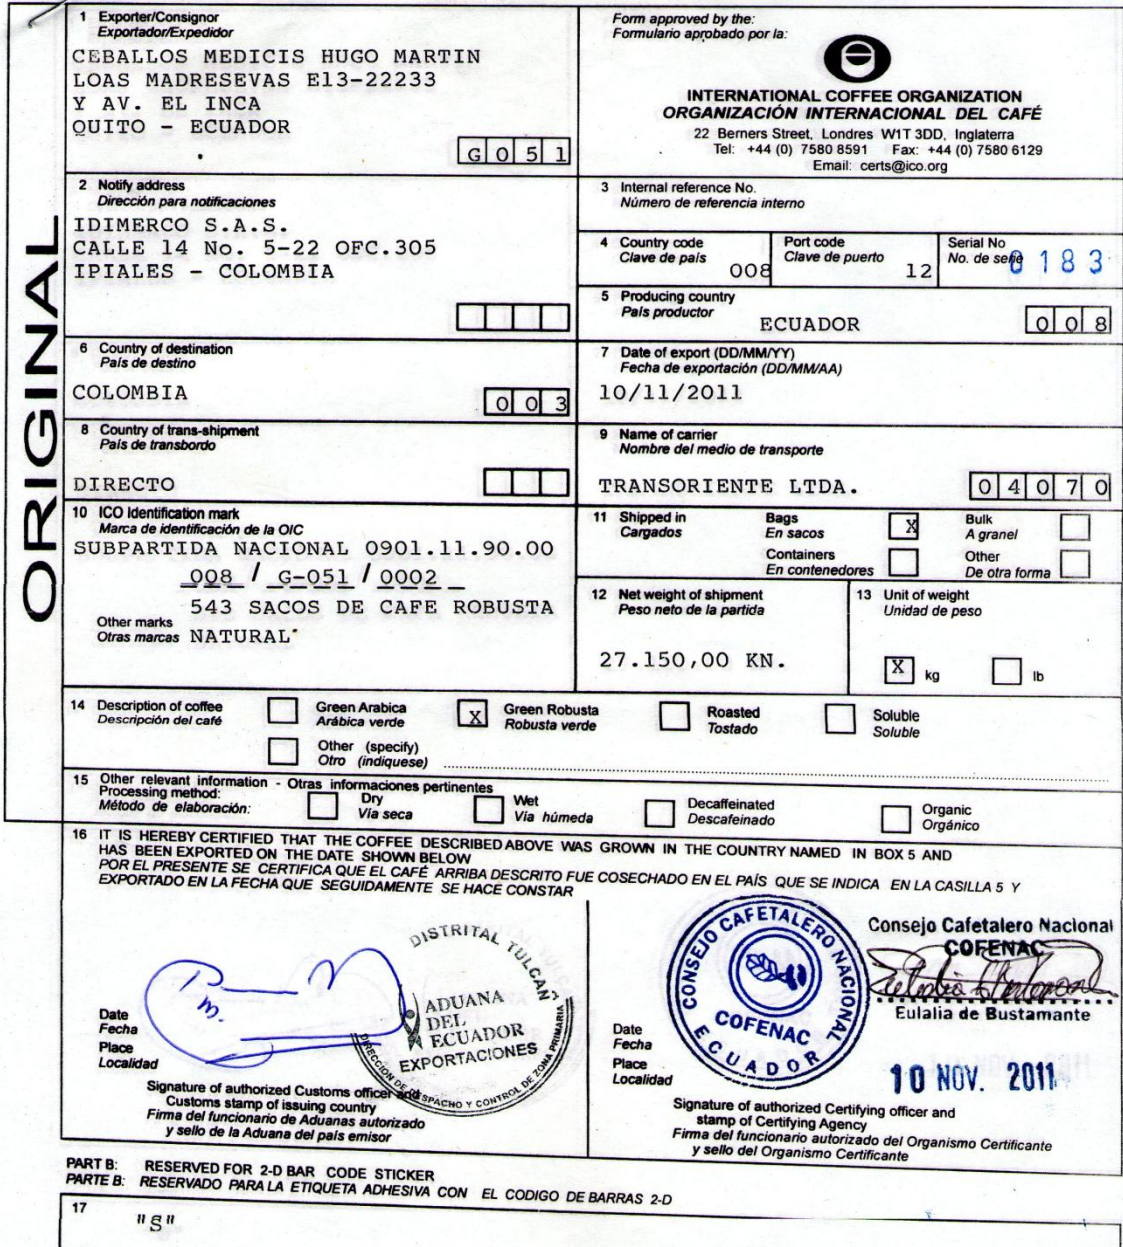 ORIGINAL
1 Exporter/Consignor
Exportador/Expedidor
CEBALLOS MEDICIS HUGO MARTIN
LOAS MADRESEVAS E13-22233
Y AV. EL INCA
QUITO - ECUADOR
G 0 5 1
Form approved by the:
Formulario aprobado por la:
INTERNATIONAL COFFEE ORGANIZATION
ORGANIZACIÓN INTERNACIONAL DEL CAFÉ
22 Berners Street, Londres W1T 3DD, Inglaterra
Tel: +44 (0) 7580 8591 Fax: +44 (0) 7580 6129
Email: certs@ico.org
2 Notify address
Dirección para notificaciones
IDIMERCO S.A.S.
CALLE 14 No. 5-22 OFC.305
IPIALES - COLOMBIA
3 Internal reference No.
Número de referencia interno
4 Country code
Clave de país
008
Port code
Clave de puerto
12
Serial No
No. de serie
0183
5 Producing country
País productor
ECUADOR
0 0 8
6 Country of destination
País de destino
COLOMBIA
0 0 3
7 Date of export (DD/MM/YY)
Fecha de exportación (DD/MM/AA)
10/11/2011
8 Country of trans-shipment
País de transbordo
DIRECTO
9 Name of carrier
Nombre del medio de transporte
TRANSORIENTE LTDA.
0 4 0 7 0
10 ICO Identification mark
Marca de identificación de la OIC
SUBPARTIDA NACIONAL 0901.11.90.00
008 / G-051 / 0002
543 SACOS DE CAFE ROBUSTA
Other marks
Otras marcas NATURAL
11 Shipped in
Cargados
Bags
En sacos
X
Bulk
A granel
Containers
En contenedores
Other
De otra forma
12 Net weight of shipment
Peso neto de la partida
27.150,00 KN.
13 Unit of weight
Unidad de peso
X kg
lb
14 Description of coffee
Descripción del café
Green Arabica
Arábica verde
X
Green Robusta
Robusta verde
Roasted
Tostado
Soluble
Soluble
Other (specify)
Otro (indíquese)
15 Other relevant information - Otras informaciones pertinentes
Processing method:
Método de elaboración:
Dry
Vía seca
Wet
Vía húmeda
Decaffeinated
Descafeinado
Organic
Orgánico
16 IT IS HEREBY CERTIFIED THAT THE COFFEE DESCRIBED ABOVE WAS GROWN IN THE COUNTRY NAMED IN BOX 5 AND
HAS BEEN EXPORTED ON THE DATE SHOWN BELOW
POR EL PRESENTE SE CERTIFICA QUE EL CAFÉ ARRIBA DESCRITO FUE COSECHADO EN EL PAÍS QUE SE INDICA EN LA CASILLA 5 Y
EXPORTADO EN LA FECHA QUE SEGUIDAMENTE SE HACE CONSTAR
DISTRITAL TULCAN
ADUANA
DEL
ECUADOR
EXPORTACIONES
DIRECCIÓN DE DESPACHO Y CONTROL DE ZONA PRIMARIA
Date
Fecha
Place
Localidad
Signature of authorized Customs officer and
Customs stamp of issuing country
Firma del funcionario de Aduanas autorizado
y sello de la Aduana del país emisor
CONSEJO CAFETALERO NACIONAL
COFENAC
ECUADOR
Consejo Cafetalero Nacional
COFENAC
Eulalia de Bustamante
Date
Fecha
Place
Localidad
10 NOV. 2011
Signature of authorized Certifying officer and
stamp of Certifying Agency
Firma del funcionario autorizado del Organismo Certificante
y sello del Organismo Certificante
PART B: RESERVED FOR 2-D BAR CODE STICKER
PARTE B: RESERVADO PARA LA ETIQUETA ADHESIVA CON EL CODIGO DE BARRAS 2-D
17
"S"